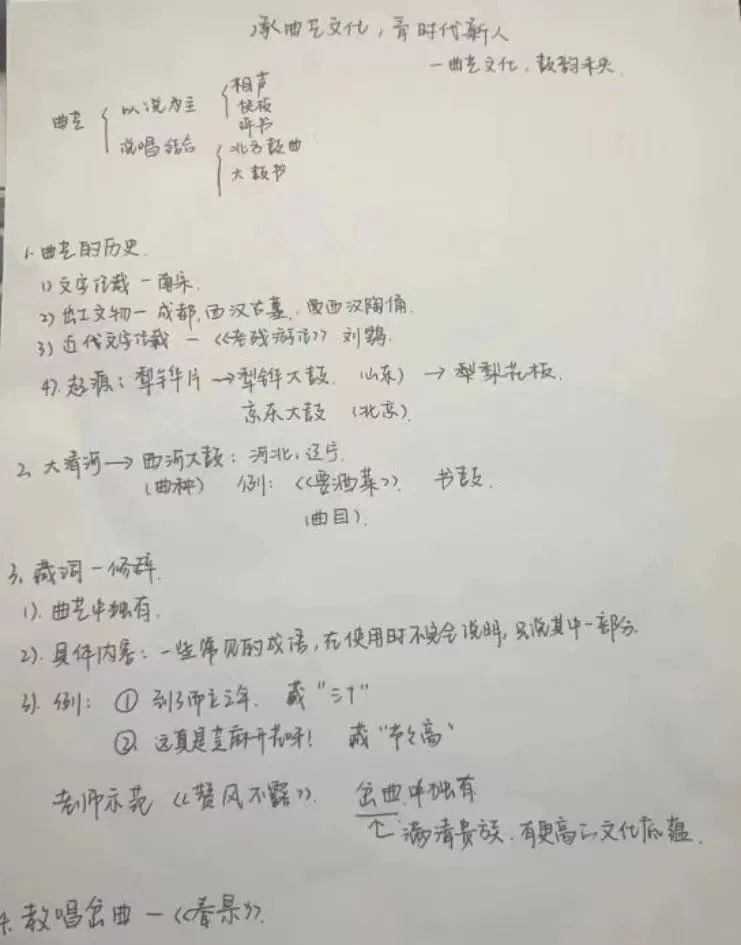 承曲艺文化，育时代新人
—曲艺文化，鼓韵未央
曲艺
以说为主
相声
快板
评书
说唱结合
北方鼓曲
大鼓书
1. 曲艺的历史.
1) 文字记载 — 南宋.
2) 出土文物 — 成都，西汉古墓，西汉陶俑.
3) 近代文字记载 — 《老残游记》 刘鹗.
4). 起源：犁铧片 → 犁铧大鼓. (山东) → 犁梨花板.
京东大鼓 (北京).
2. 大清河 → 西河大鼓：河北，辽宁.
(曲种) 例：《要酒菜》. 书鼓.
(曲目).
3. 藏词 — 修辞.
1). 曲艺中独有.
2). 具体内容：一些常见的成语，在使用时不完全说明，只说其中一部分.
3). 例：① 到了而立之年. 藏“三十”
② 这真是芝麻开花呀！ 藏“节节高”
老师示范《赞风不露》. 岔曲中独有
满清贵族，有更高的文化底蕴.
4. 教唱岔曲 — 《春景》.